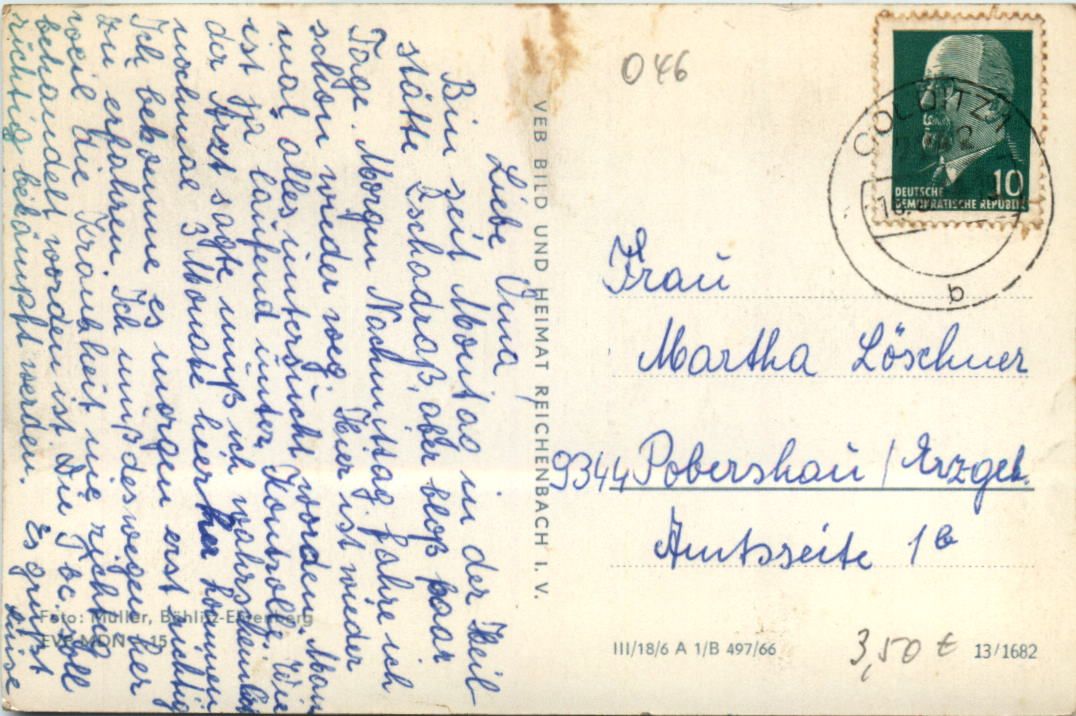 Liebe Oma
Bin seit Montag in der Heil
stätte Zschadraß, aber bloß paar
Tage. Morgen Nachmittag fahre ich
schon wieder weg. Hier ist wieder
mal alles untersucht worden. Man
ist ja laufend unter Kontrolle. Wie
der Arzt sagte muß ich
nochmal 3 Monate hierher kommen
Ich bekomme es morgen erst richtig
zu erfahren. Ich muß deswegen her
weil die Krankheit nie richtig
behandelt worden ist. Die Tbc soll
richtig bekämpft werden. Es grüßt
VEB BILD UND HEIMAT REICHENBACH I. V.
Foto: Müller, Böhlitz-Ehrenberg
046
COLDITZ 1
10
DEUTSCHE
DEMOKRATISCHE REPUBLIK
b
Frau
Martha Löschner
9344 Pobershau / Erzgeb.
Amtsseite 1b
III/18/6 A 1/B 497/66
3,50 €
13/1682